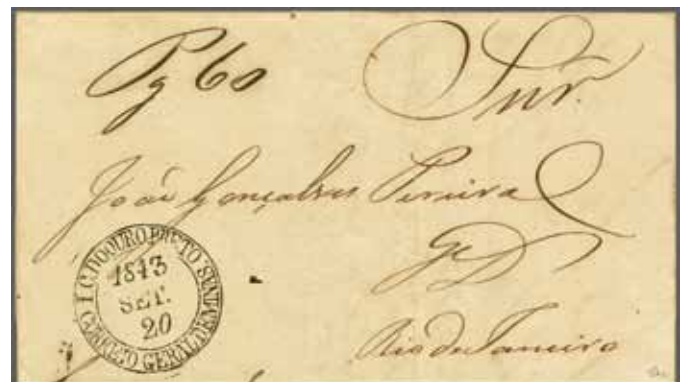 Pg 60 Snr.
João Gonçalves Pereira
G D
Rio de Janeiro
I.C. DO OURO PRETO
1843
SET.
20
CORREIO GERAL DE MINAS